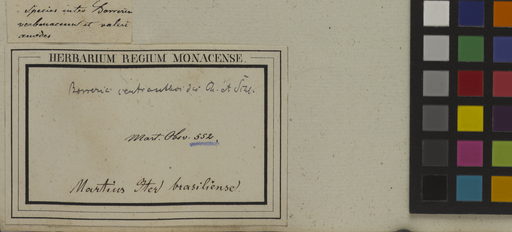 Species inter Borreriam
verbenaceam et valeri
anodes
HERBARIUM REGIUM MONACENSE.
Borreria centranthoides Ch. et Schl.
Mart. Obs. 552.
Martius Iter brasiliense